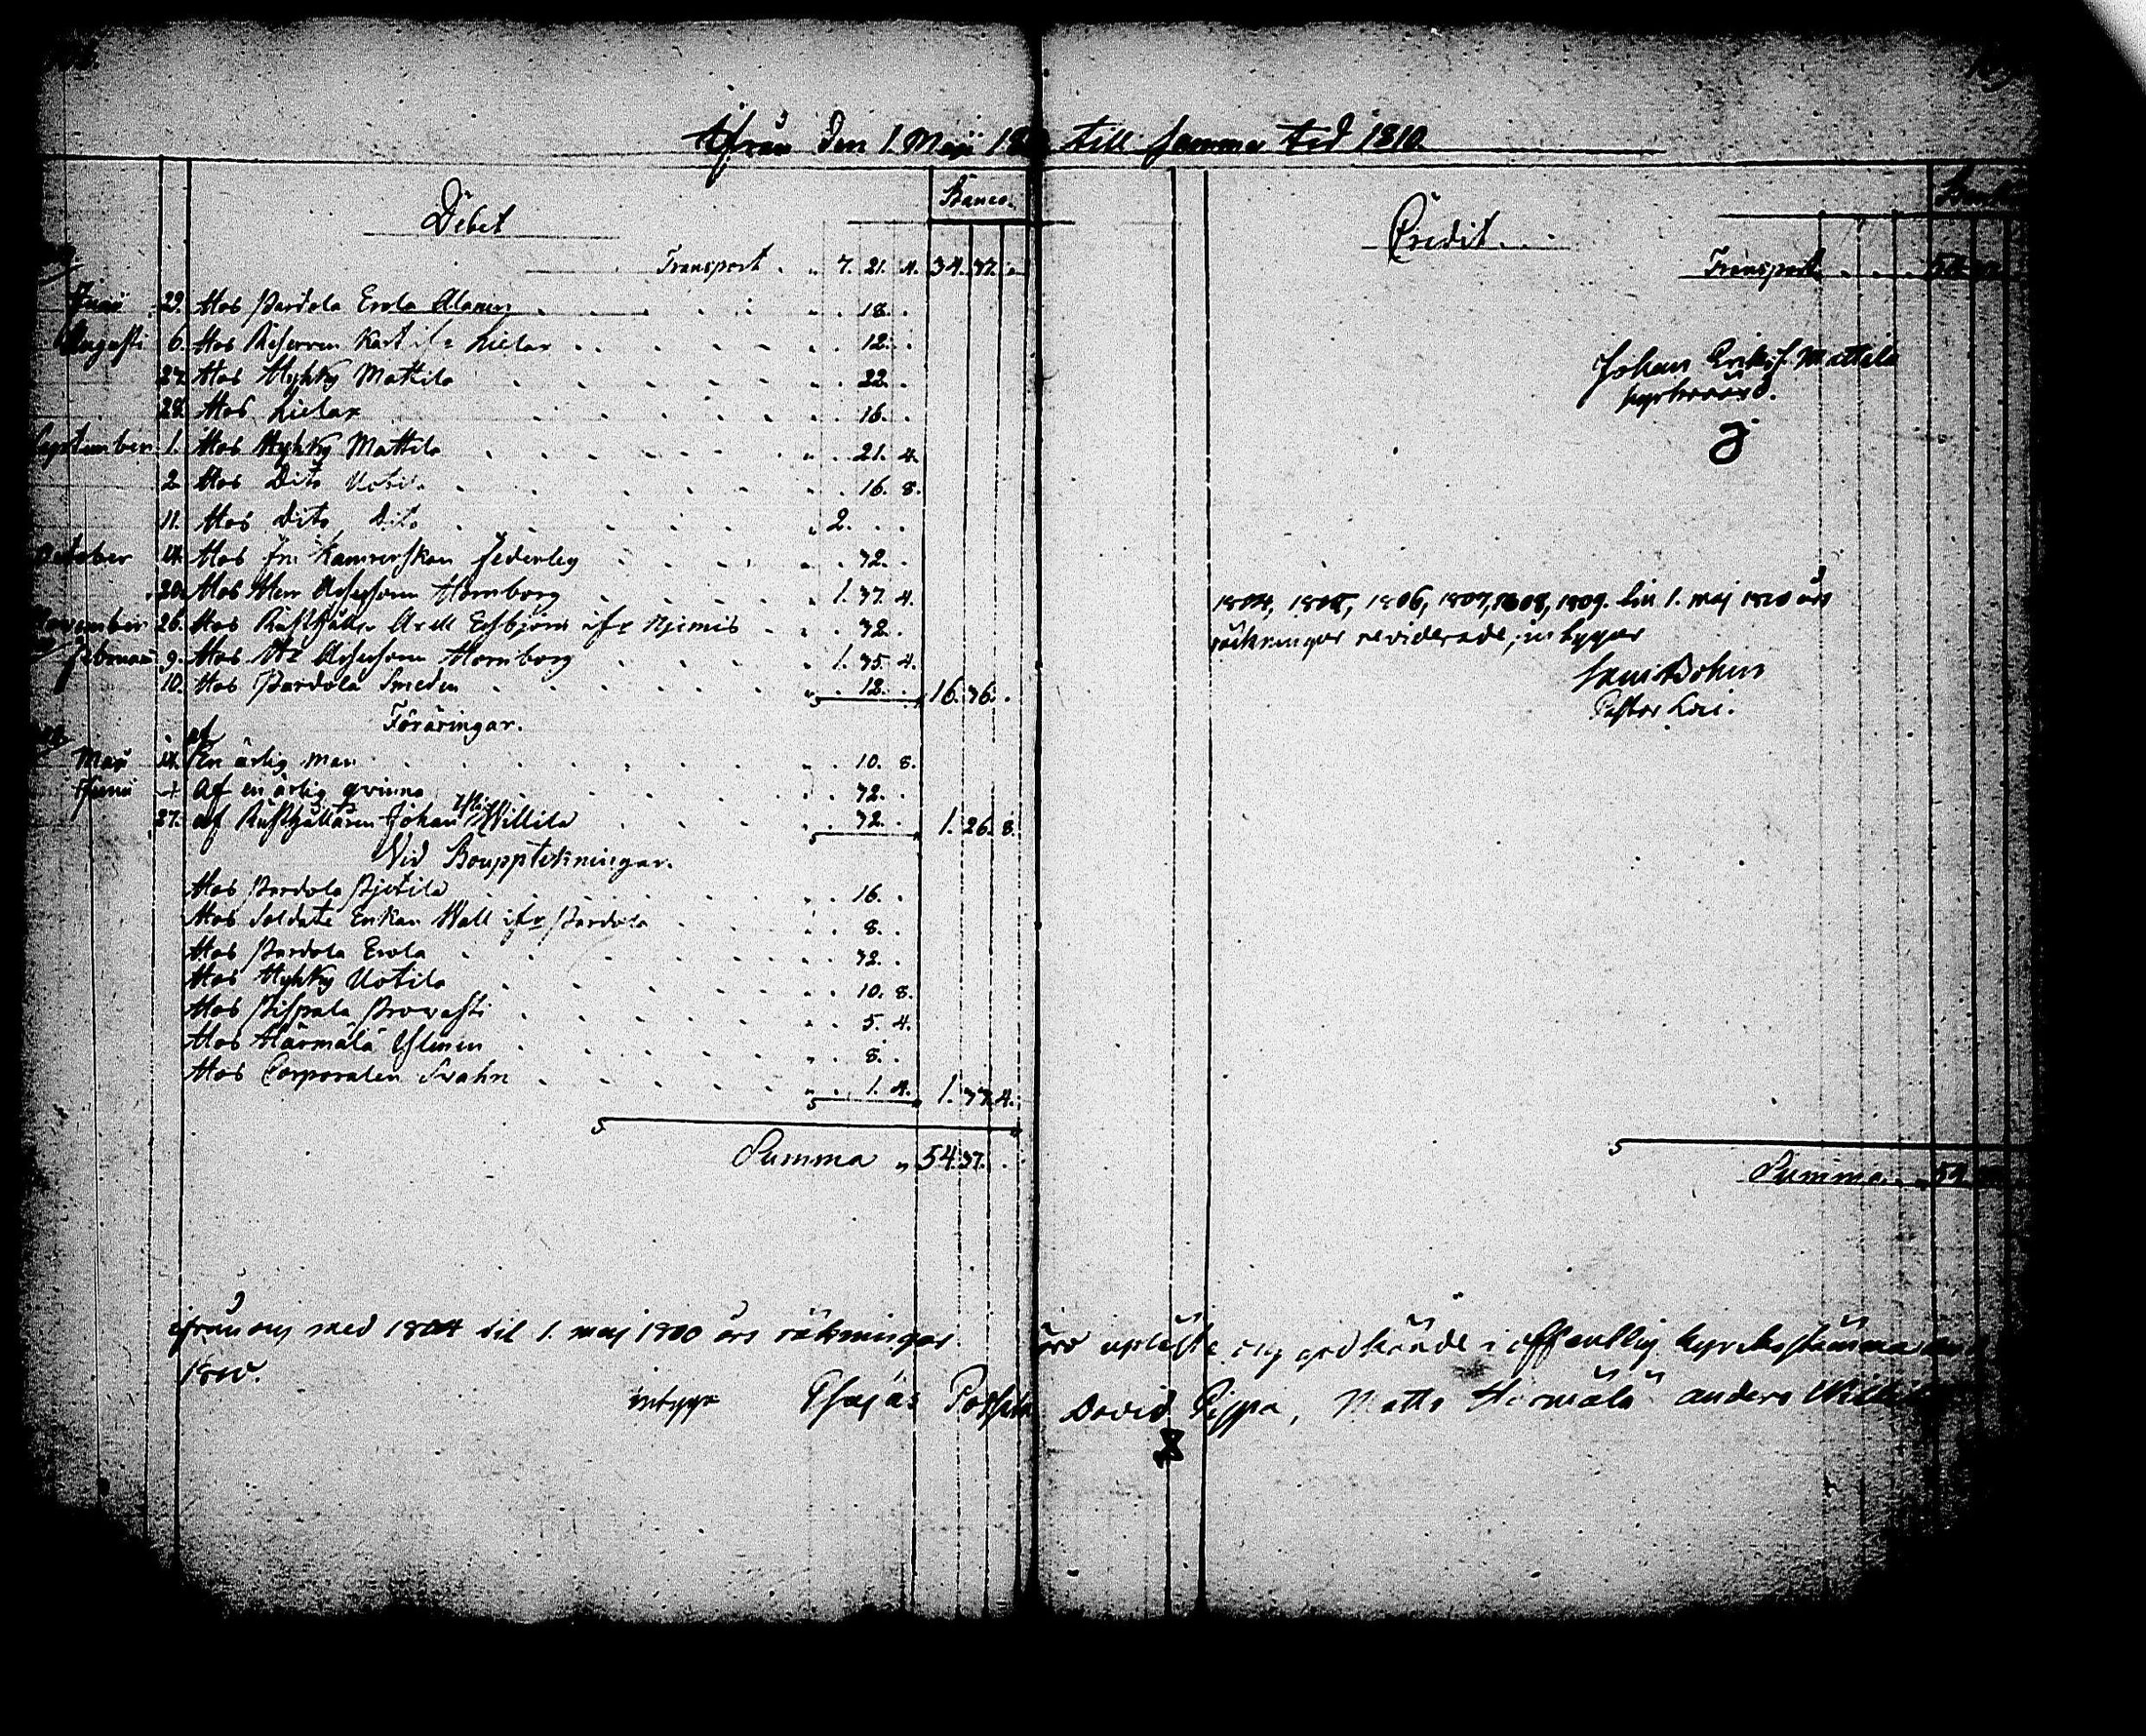 ifrån den 1. Maji 18 till samma tid 1810.
Debet
Banco.
Transport . „ 7. 21. 4. 34. 37. „
Junii 29. Hos Pardola Erola Alanen . . . 18. .
Augusti 6. Hos . . . 12. .
27. Hos Hyhky Mattila . . . 22. .
28. Hos Lielax . . . 16. .
September 1. Hos Hyhky Mattila . . . 21. 4.
2. Hos Dito Uotila . . . 16. 8.
11. Hos dito, dito . . . 2. . .
October 14. Hos Fru Kamrerskan Federley . . . 32. .
20. Hos Herr Assessorn Hornborg . . . 1. 37. 4.
November 26. Hos Rusthållar Axell Esbjörn ifr Njemis . . . 32. .
Februarii 9. Hos Hr Assessorn Hornborg . . . 1. 35. 4.
10. Hos Pardola Smeden . . . 12. . 16. 36. .
Föräringar.
Maji 14. af En ärlig man . . . 10. 8.
Junii Af en ärlig qvinna . . . 32. .
27. af Rusthållaren Johan Willila . . . 32. . 1. 26. 8.
Vid Boupptekningar.
Hos Pardola Pjetila . . . 16. .
Hos Soldats Enkan Wall ifr Pardola . . . 8. .
Hos Pardola Erola . . . 32. .
Hos Hyhky Uotila . . . 10. 8.
Hos Pispala Provasti . . . 5. 4.
Hos Härmälä Ylinen . . . 8. .
Hos Corporalen Svahn . . . 1. 4. 1. 33. 4.
Summa „ 54. 37. .
Credit.
Transport . . . 54
Johan Eriks. Mattila
kyrkovärd.
1804, 1805, 1806, 1807, 1808, 1809. till 1. maj 1810 års
räkningar reviderade, intygar
Pastor Loci.
Summa . . 54
ifrån och med 1804 til 1. maj 1810 års räkningar äro upläste och godkände i offentlig kyrkostämma den
1810.
intyga Esajas David Pispa, Matts Härmälä anders